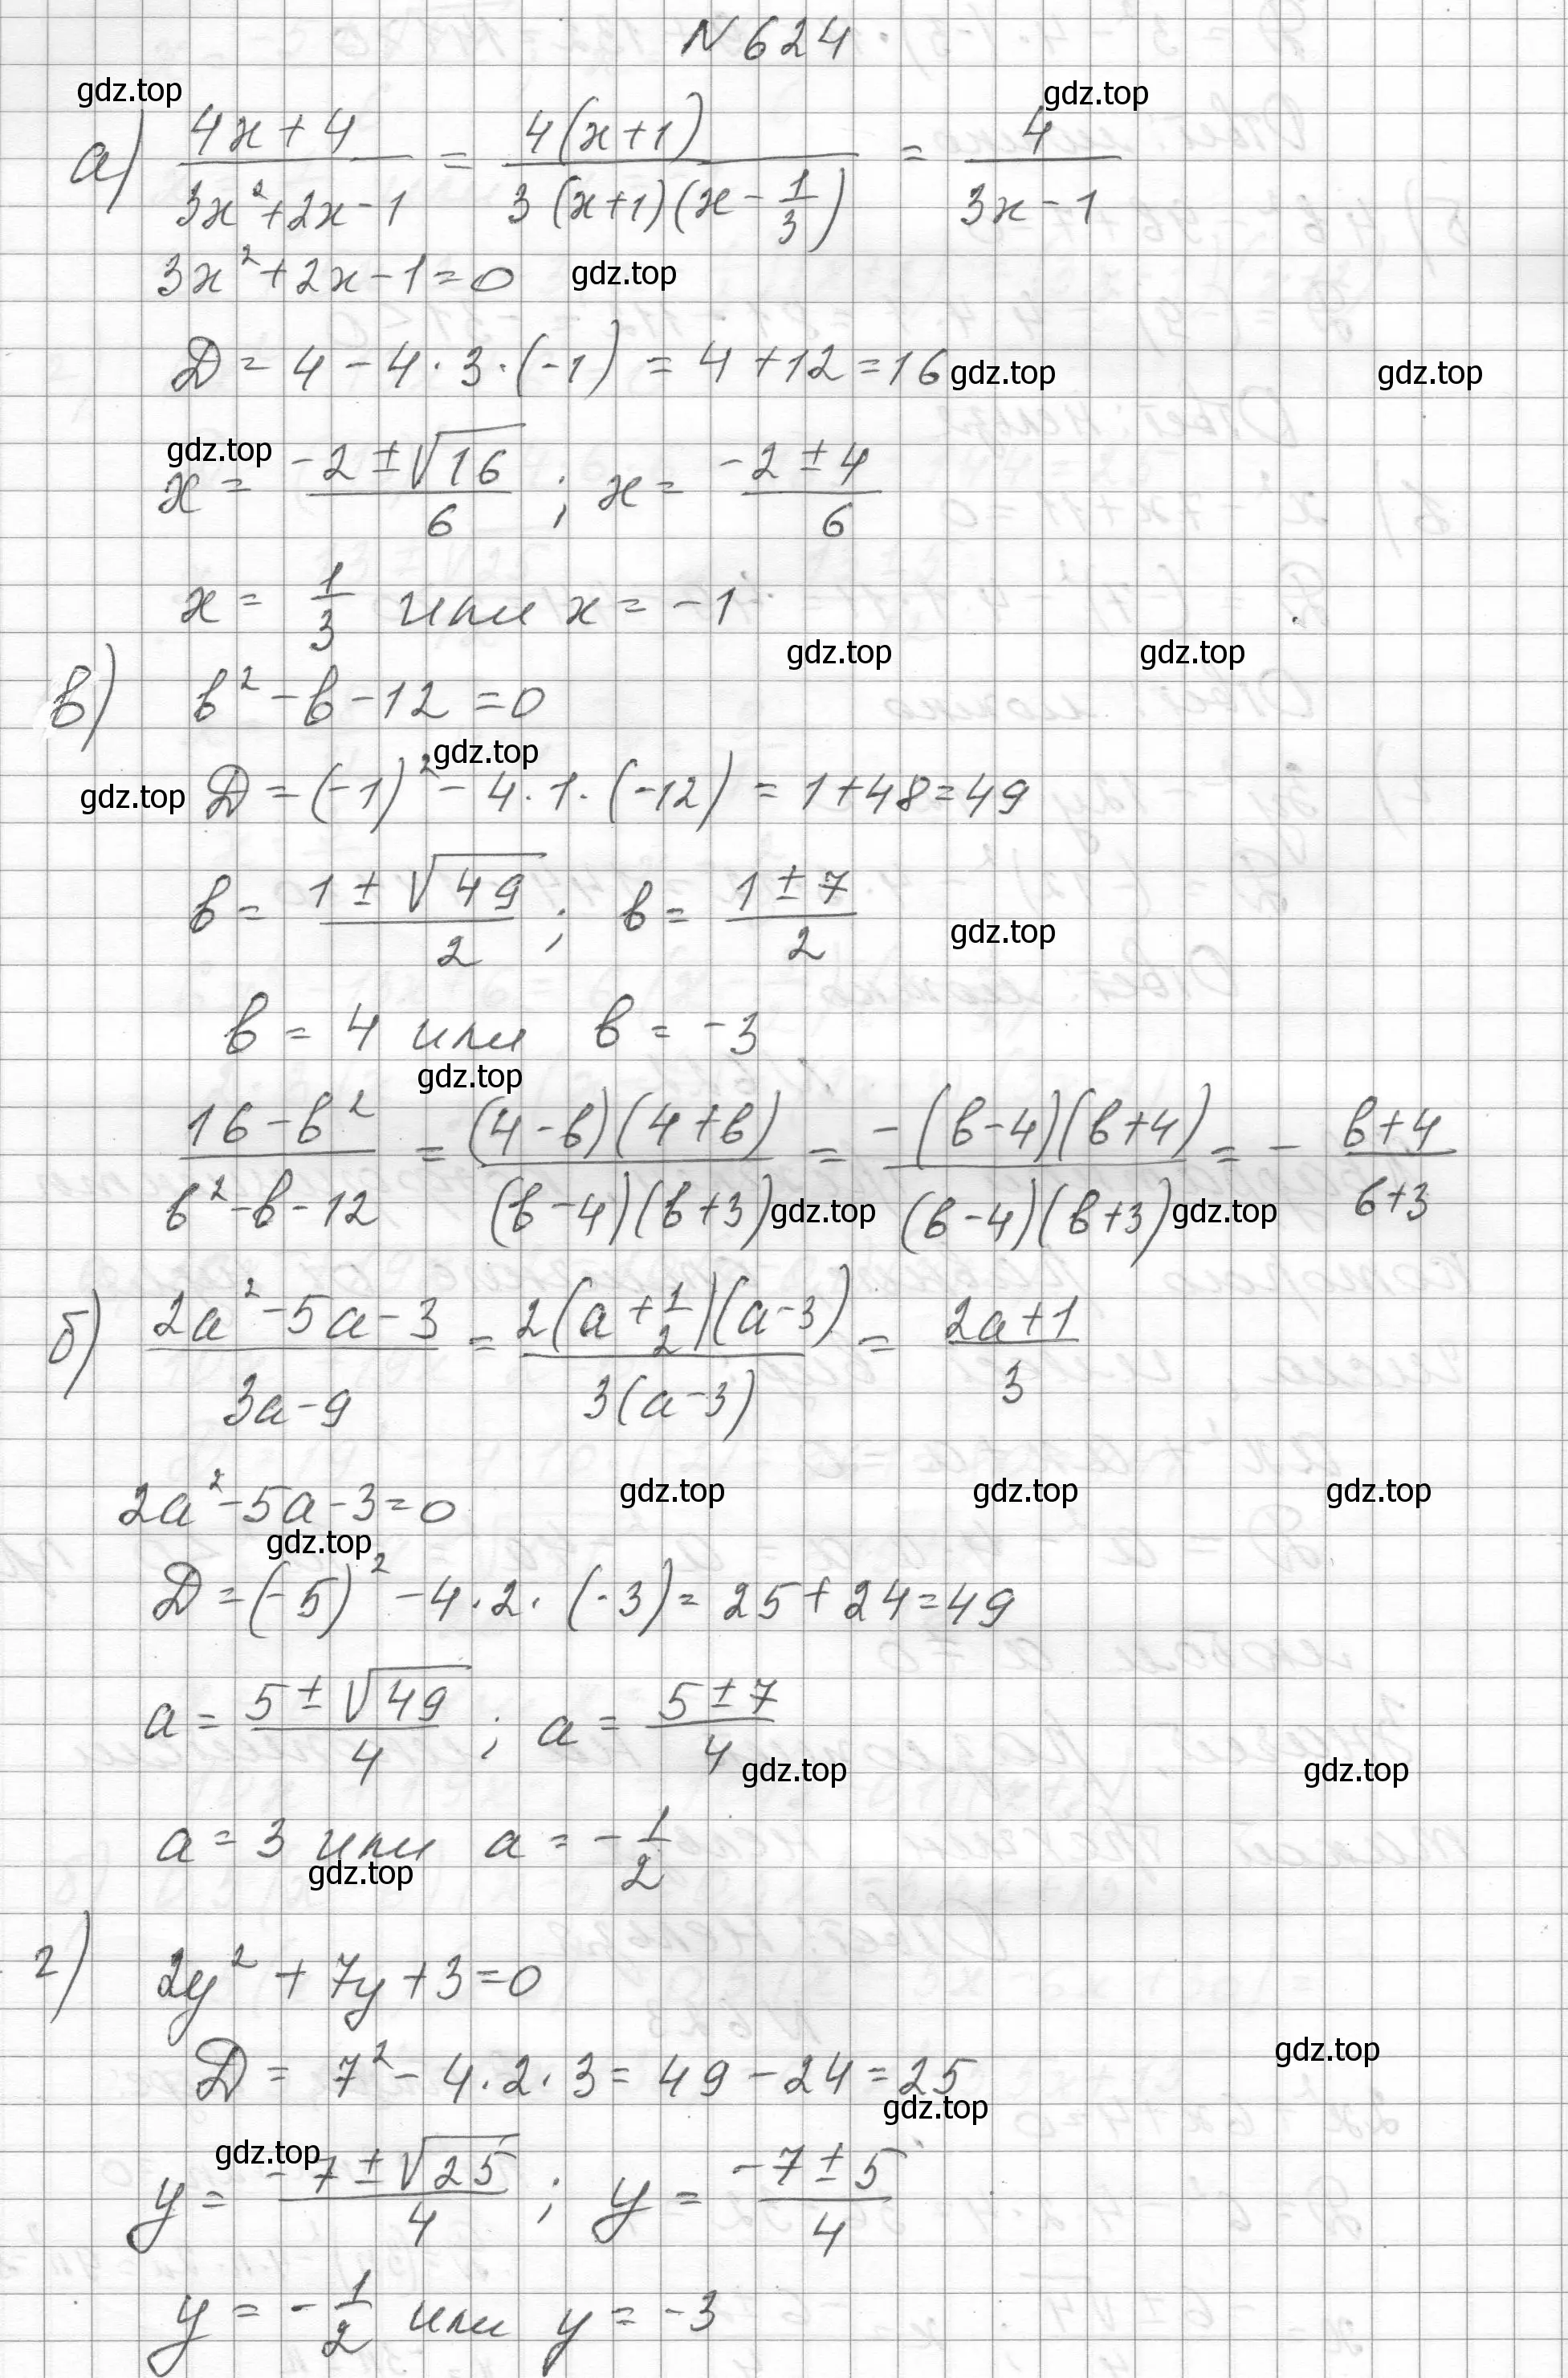 N 624
gdz.top gdz.top
а) (4x + 4)/(3x²+2x-1) = 4(x+1)/(3(x+1)(x - 1/3)) = 4/(3x-1)
3x²+2x-1=0 gdz.top
D = 4 - 4·3·(-1) = 4+12=16 gdz.top gdz.top
gdz.top
x = (-2±√16)/6 ; x = (-2±4)/6
x = 1/3 или x = -1
gdz.top gdz.top
в) в² - в - 12 = 0
gdz.top
gdz.top D = (-1)² - 4·1·(-12) = 1+48=49
в = (1±√49)/2 ; в = (1±7)/2
gdz.top
в = 4 или в = -3
gdz.top
(16-в²)/(в²-в-12) = (4-в)(4+в)/((в-4)(в+3)) = -(в-4)(в+4)/((в-4)(в+3)) = - (в+4)/(в+3)
gdz.top gdz.top
б) (2a²-5a-3)/(3a-9) = 2(a+1/2)(a-3)/(3(a-3)) = (2a+1)/3
gdz.top gdz.top gdz.top
2a²-5a-3=0
gdz.top
D=(-5)²-4·2·(-3)=25+24=49
a = (5±√49)/4 ; a = (5±7)/4
gdz.top gdz.top
a = 3 или a = -1/2
gdz.top
г) 2y² + 7y + 3 = 0
gdz.top
D = 7² - 4·2·3 = 49 - 24 = 25
gdz.top
gdz.top
y = (-7±√25)/4 ; y = (-7±5)/4
y = -1/2 или y = -3